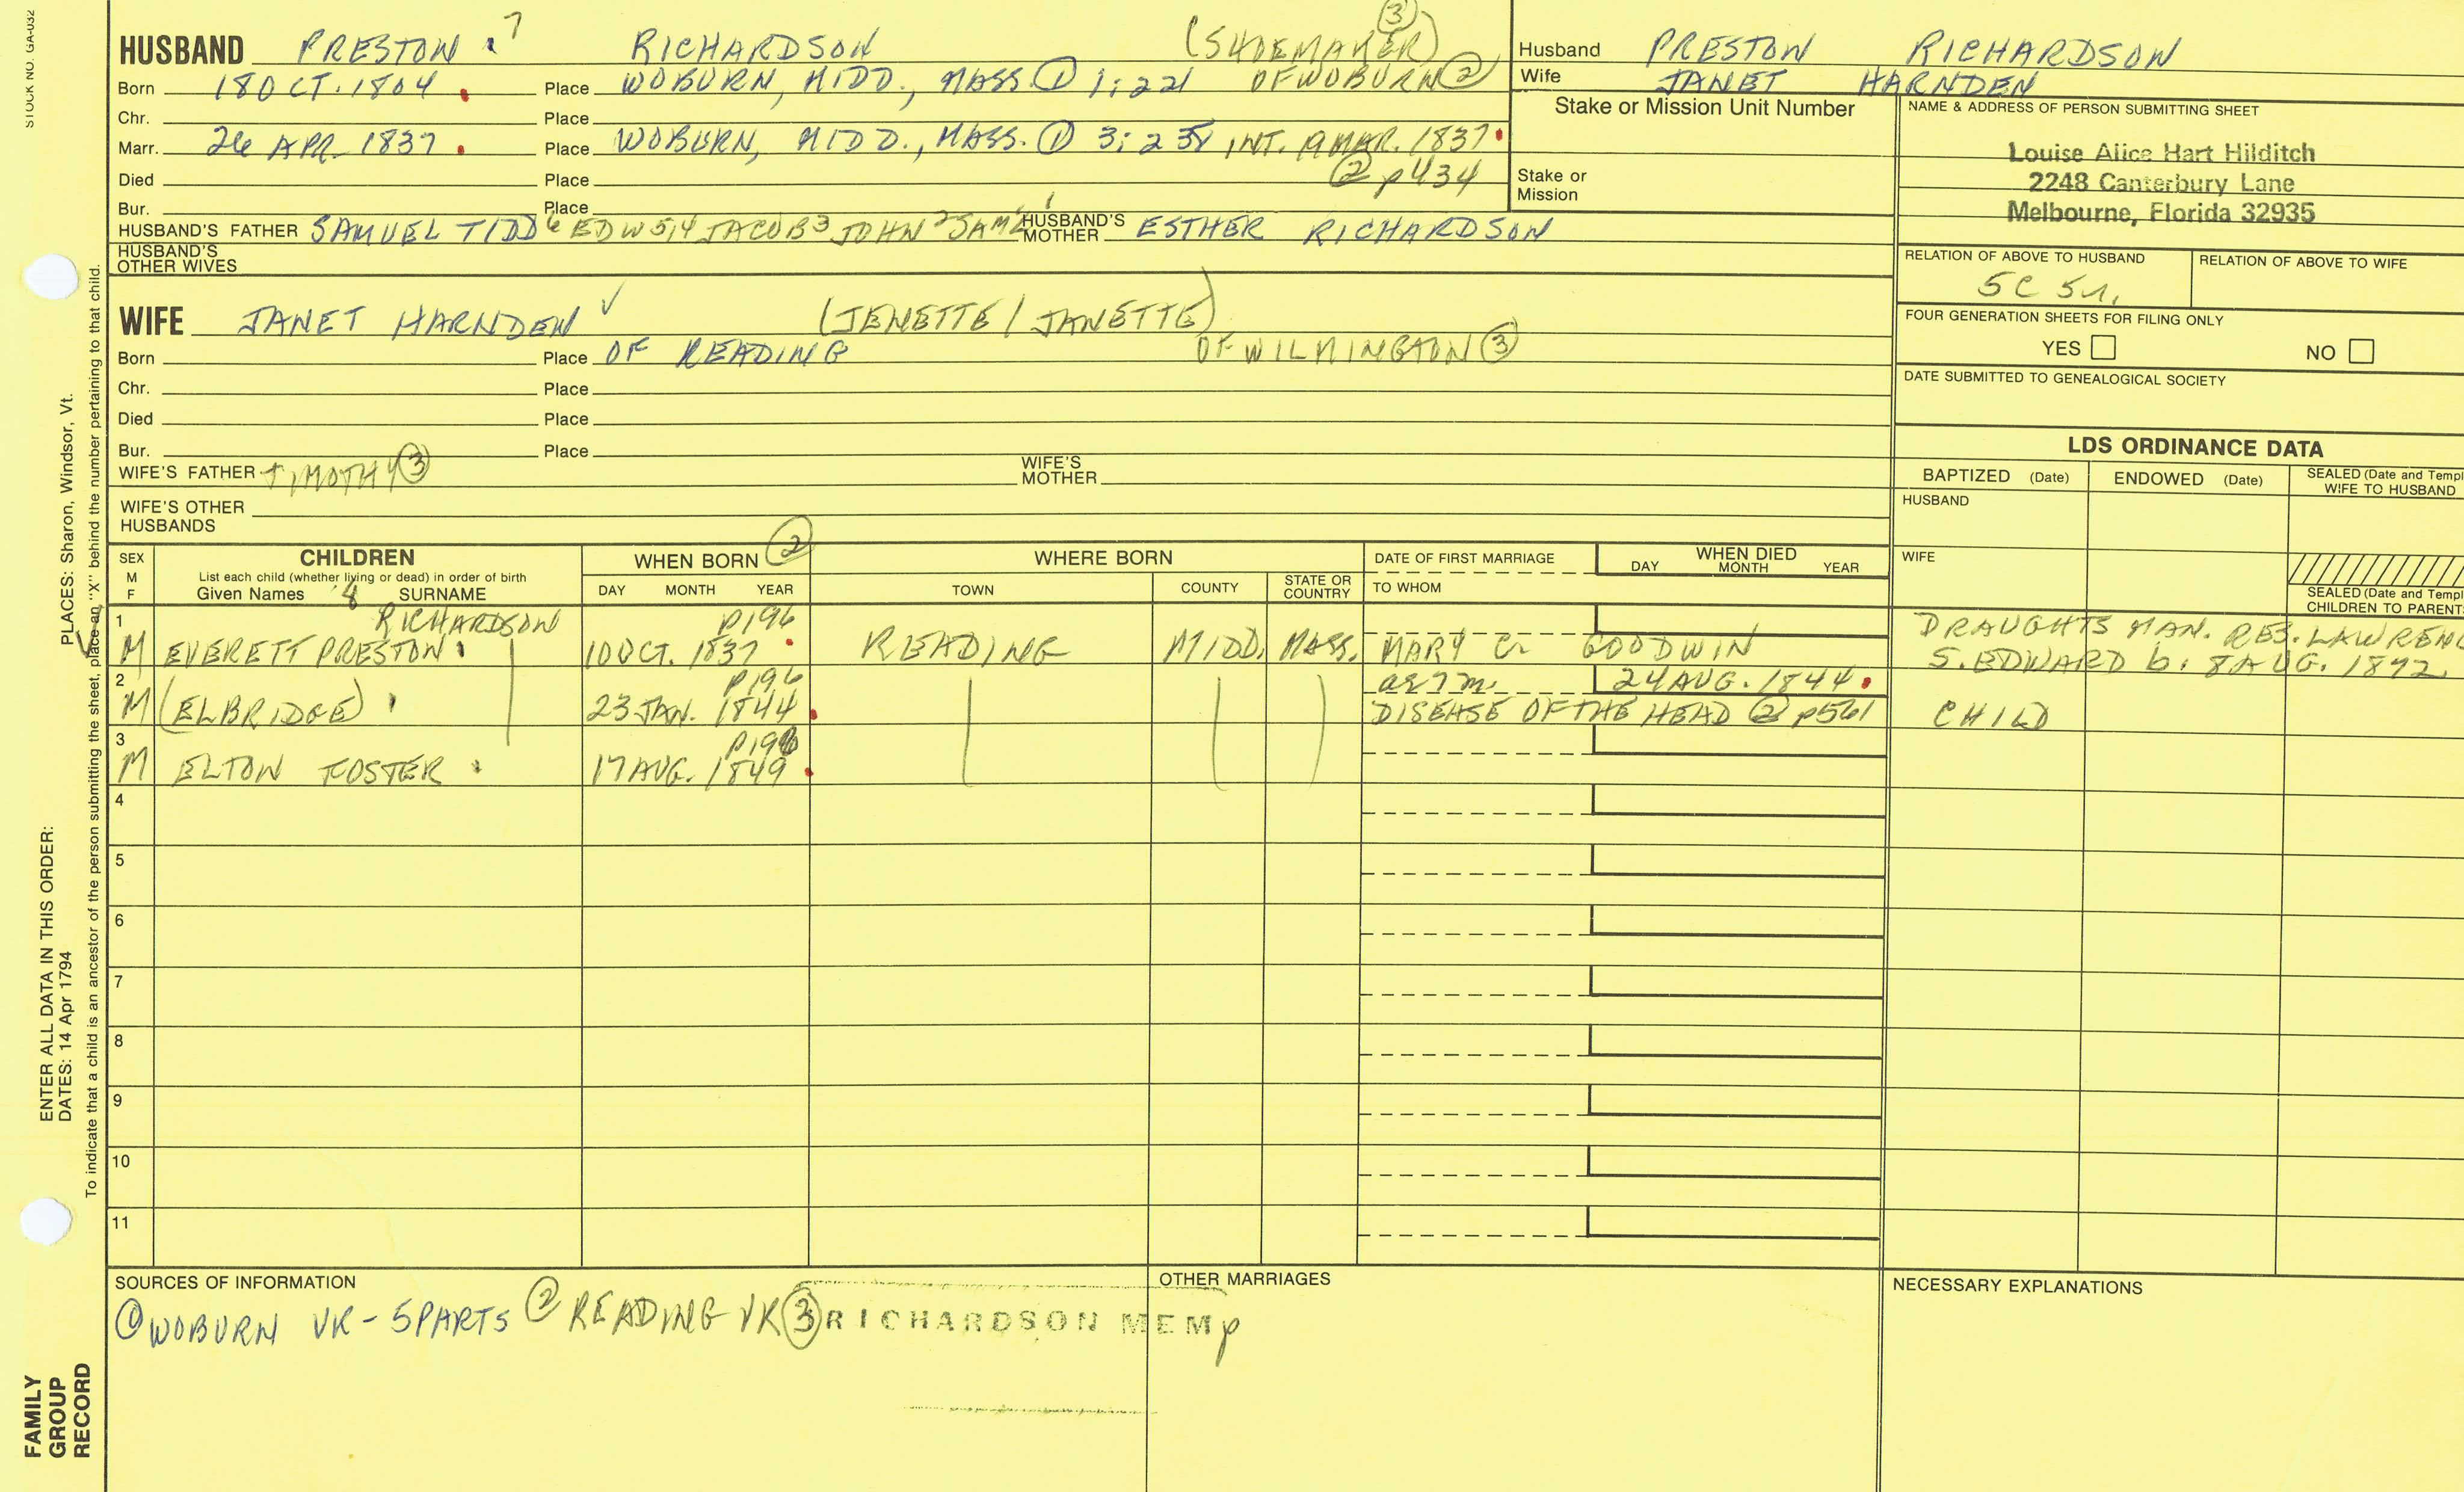 STOCK NO. GA-032
HUSBAND PRESTON 7 RICHARDSON (SHOEMAKER) ③
Born 18 OCT. 1804 Place WOBURN, MIDD., MASS. ① 1:221 OF WOBURN ②
Chr. Place
Marr. 26 APR. 1837 Place WOBURN, MIDD., MASS. ① 3:235 INT. 9 MAR. 1837
② p434
Died Place
Bur. Place
HUSBAND'S FATHER SAMUEL TIDD 6 EDW 5,4 JACOB 3 JOHN 2 SAM'L 1 HUSBAND'S MOTHER ESTHER RICHARDSON
HUSBAND'S OTHER WIVES
WIFE JANET HARNDEN ✓ (JENETTE / JANETTE)
Born Place OF READING OF WILMINGTON ③
Chr. Place
Died Place
Bur. Place
WIFE'S FATHER TIMOTHY ③ WIFE'S MOTHER
WIFE'S OTHER HUSBANDS
Husband PRESTON RICHARDSON
Wife JANET HARNDEN
Stake or Mission Unit Number
Stake or Mission
NAME & ADDRESS OF PERSON SUBMITTING SHEET
Louise Alice Hart Hilditch
2248 Canterbury Lane
Melbourne, Florida 32935
RELATION OF ABOVE TO HUSBAND RELATION OF ABOVE TO WIFE
5C 5r.
FOUR GENERATION SHEETS FOR FILING ONLY
YES NO
DATE SUBMITTED TO GENEALOGICAL SOCIETY
LDS ORDINANCE DATA
BAPTIZED (Date) ENDOWED (Date) SEALED (Date and Templ
WIFE TO HUSBAND
HUSBAND
WIFE
SEALED (Date and Templ
CHILDREN TO PARENT
SEX M F
CHILDREN
List each child (whether living or dead) in order of birth
Given Names 8 SURNAME
WHEN BORN ②
DAY MONTH YEAR
WHERE BORN
TOWN COUNTY STATE OR COUNTRY
DATE OF FIRST MARRIAGE
TO WHOM
WHEN DIED
DAY MONTH YEAR
1 RICHARDSON p196
M EVERETT PRESTON 10 OCT. 1837 READING MIDD. MASS. MARY C. GOODWIN DRAUGHTSMAN. RES. LAWRENC
S. EDWARD b. 8 AUG. 1872.
2 p196 ae 7m. 24 AUG. 1844
M (ELBRIDGE) 23 JAN. 1844 DISEASE OF THE HEAD ② p561 CHILD
3 p196
M ELTON FOSTER 17 AUG. 1849
4
5
6
7
8
9
10
11
SOURCES OF INFORMATION
① WOBURN VR - 5 PARTS ② READING VR ③ RICHARDSON MEM p
OTHER MARRIAGES
NECESSARY EXPLANATIONS
FAMILY GROUP RECORD
ENTER ALL DATA IN THIS ORDER:
DATES: 14 Apr 1794
PLACES: Sharon, Windsor, Vt.
To indicate that a child is an ancestor of the person submitting the sheet, place an "X" behind the number pertaining to that child.